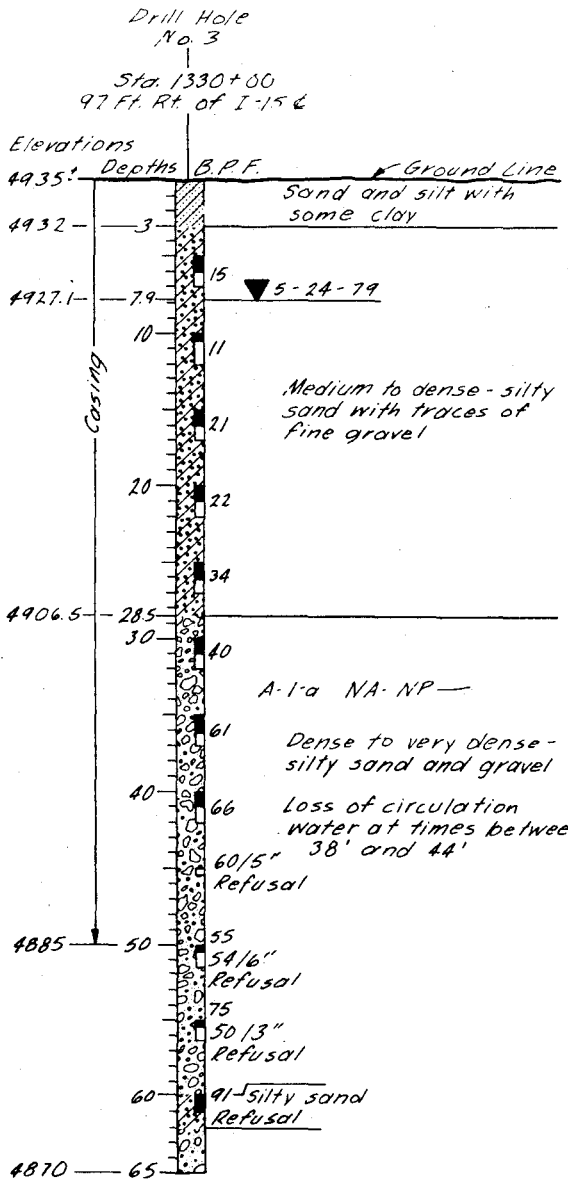 Drill Hole
No. 3
Sta. 1330+00
97 Ft. Rt. of I-15 ℄
Elevations
Depths B.P.F.
Ground Line
4935±
Sand and silt with
some clay
4932 3
15
4927.1 7.9 5-24-79
10
11
Casing
Medium to dense-silty
sand with traces of
fine gravel
21
20
22
34
4906.5 28.5
30
40
A-1-a NA-NP
61
Dense to very dense-
silty sand and gravel
40
66
Loss of circulation
water at times betwee
38' and 44'
60/5"
Refusal
4885 50
55
54/6"
Refusal
75
50/3"
Refusal
60 91 silty sand
Refusal
4870 65